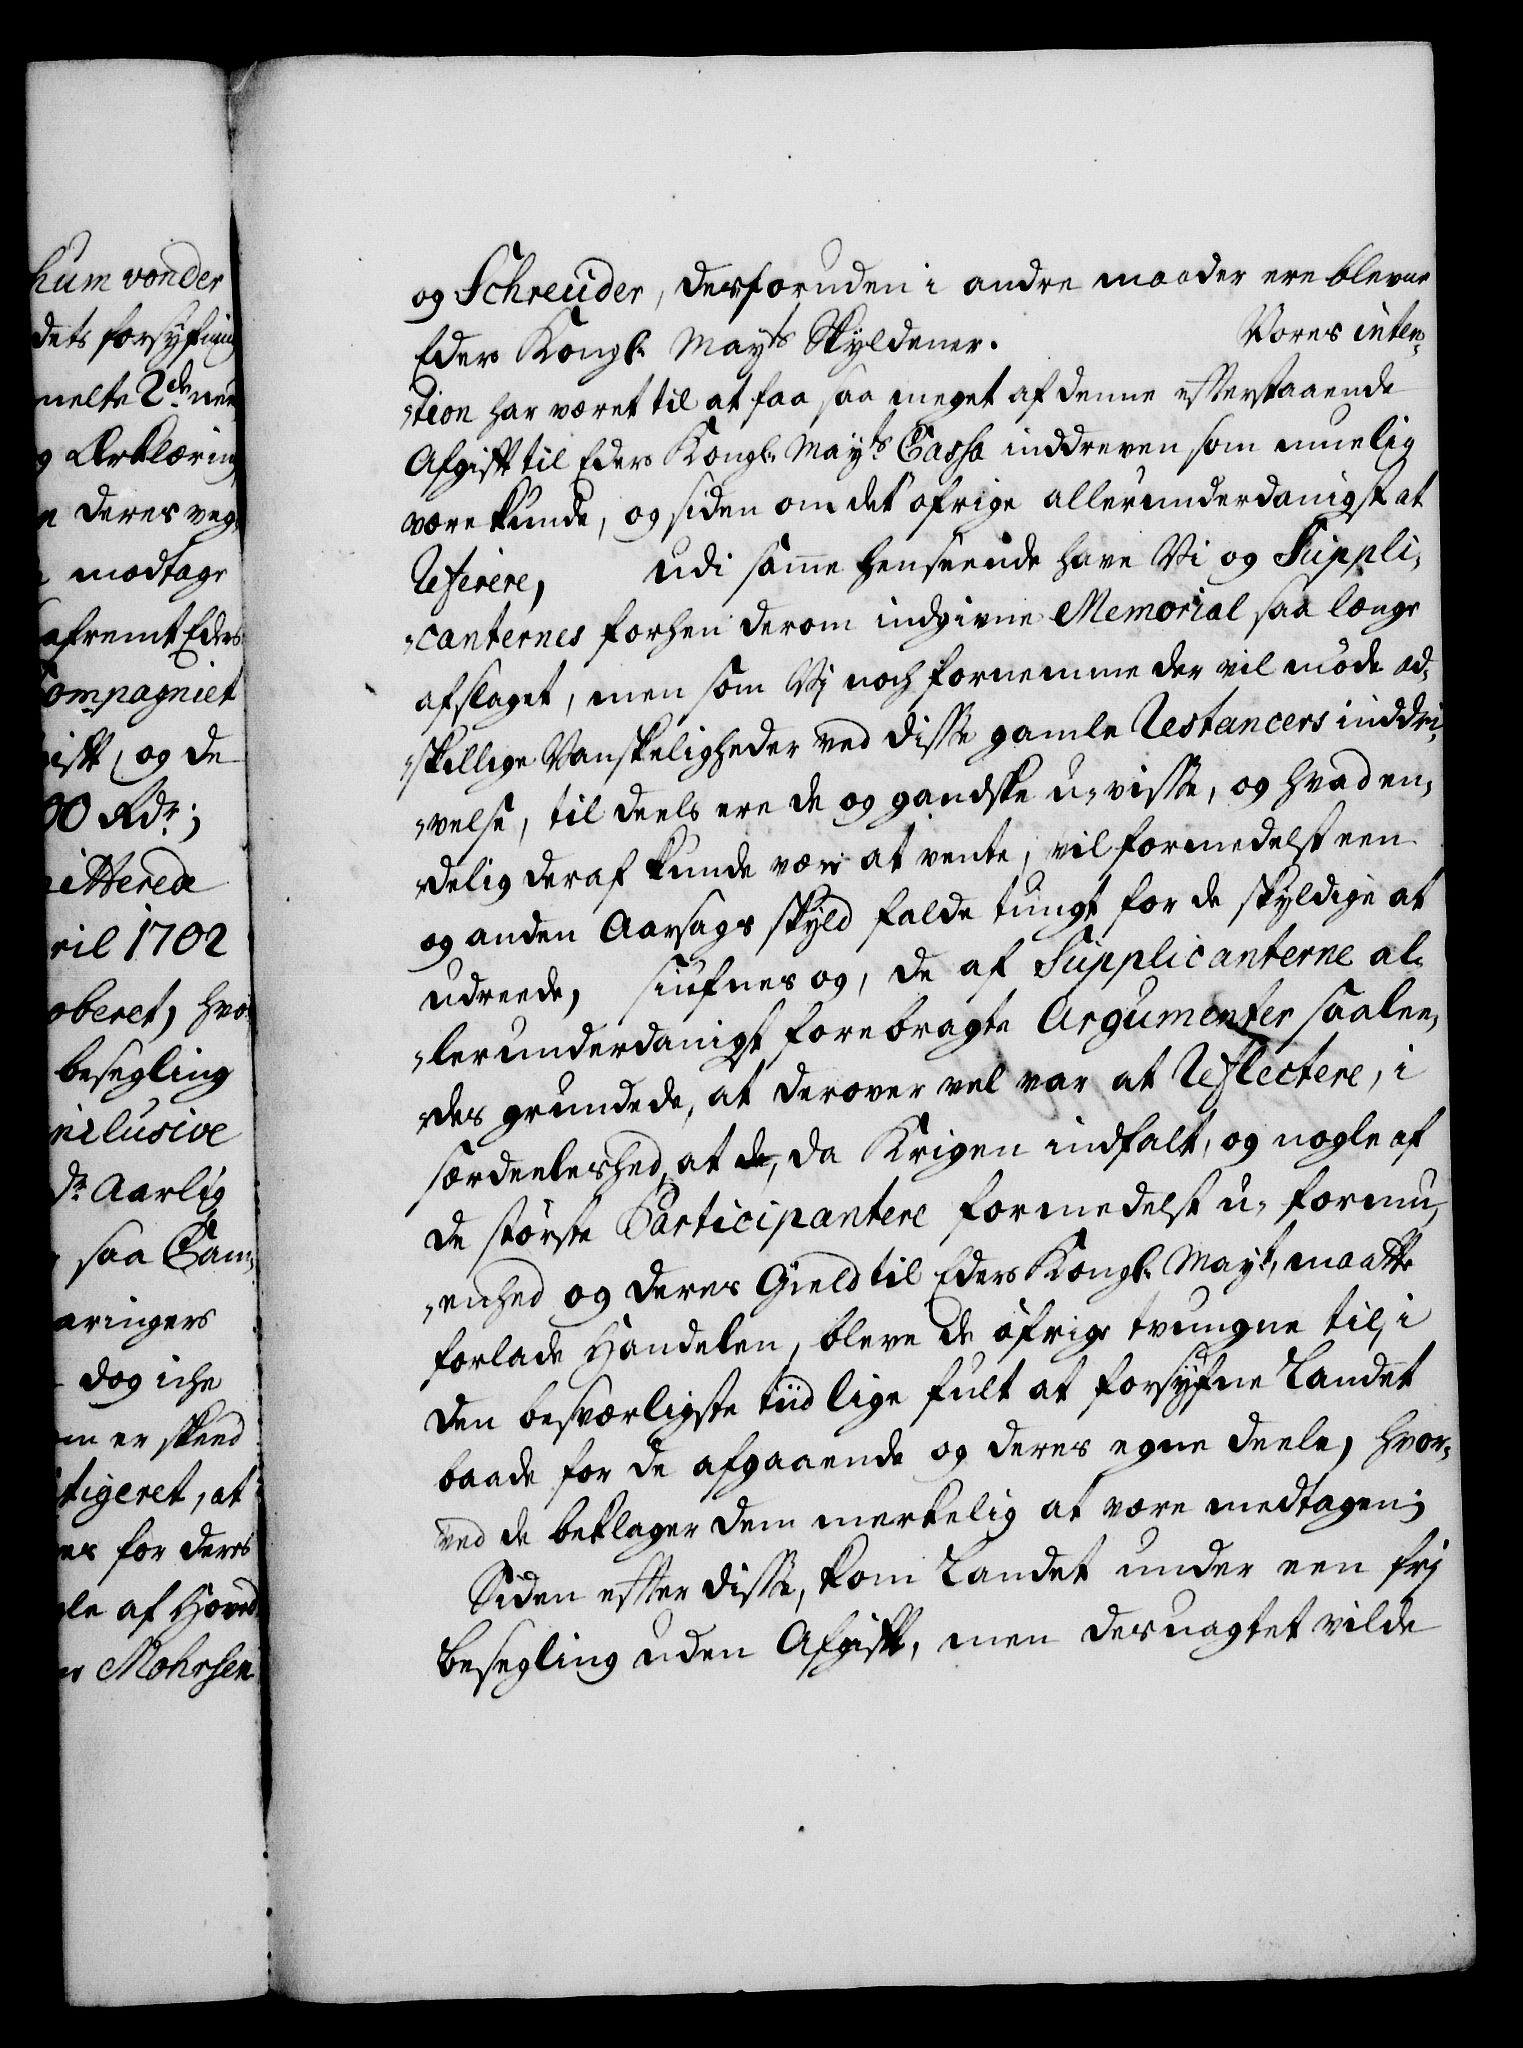 hum vonder
dets forsyfning
melte 2de nen
g Erklæring
n deres veg¸
modtage
afremt Eders
Compagniet
gift, og de
00 Rdr;
mitterede
ril 1702
oberet, hvo
besegling
inclusive
dr Aarlig
saa Cam¸
aringers
dog iche
m er skeed
tigeret, at
es for deres
gle af Hoved
Mohrsen
og Schreuder, desforuden i andre maader ere blevne
Eders Kongl. Mayts Skyldener. Vores inten¸
¸tion har været til at faa saa meget af denne efterstaaende
Afgift til Eders Kongl. Mayts Cassa inddreven som muelig
være kunde, og siden om det øfrige allerunderdanigst at
Referere, udi samme henseende have Vi og Suppli¸
¸canternes forhen derom indgivne Memorial saa længe
afslaget, men som Vj noch fornemme der vil møde ad¸
¸skillige Vanskeligheder ved disse gamle Restancers inddri¸
¸velse, til deels ere de og gandske u¸visse, og hvad en¸
¸delig deraf kunde være at vente, vil formedelst een
og anden Aarsags skyld falde tungt for de skyldige at
udreede, siufnes og, de af Supplicanterne al¸
¸lerunderdanigst forebragte Argumenter saalee¸
¸des grundede, at derover vel var at Reflectere, i
særdeeleshed, at de, da Krigen indfalt, og nogle af
de største Participantere formedelst u¸formu¸
¸enhed og deres Gield til Eders Kongl. Mayt, maatte
forlade Handelen, bleve de øfrige tvungne til, i
den besværligste tiid lige fult at forsyfne Landet
baade for de afgaaende og deres egne deele, hvor¸
ved de beklager dem merkelig at være medtagen;
Siden efter disse, kom Landet under een frj
besegling uden Afgift, men desuagtet vilde